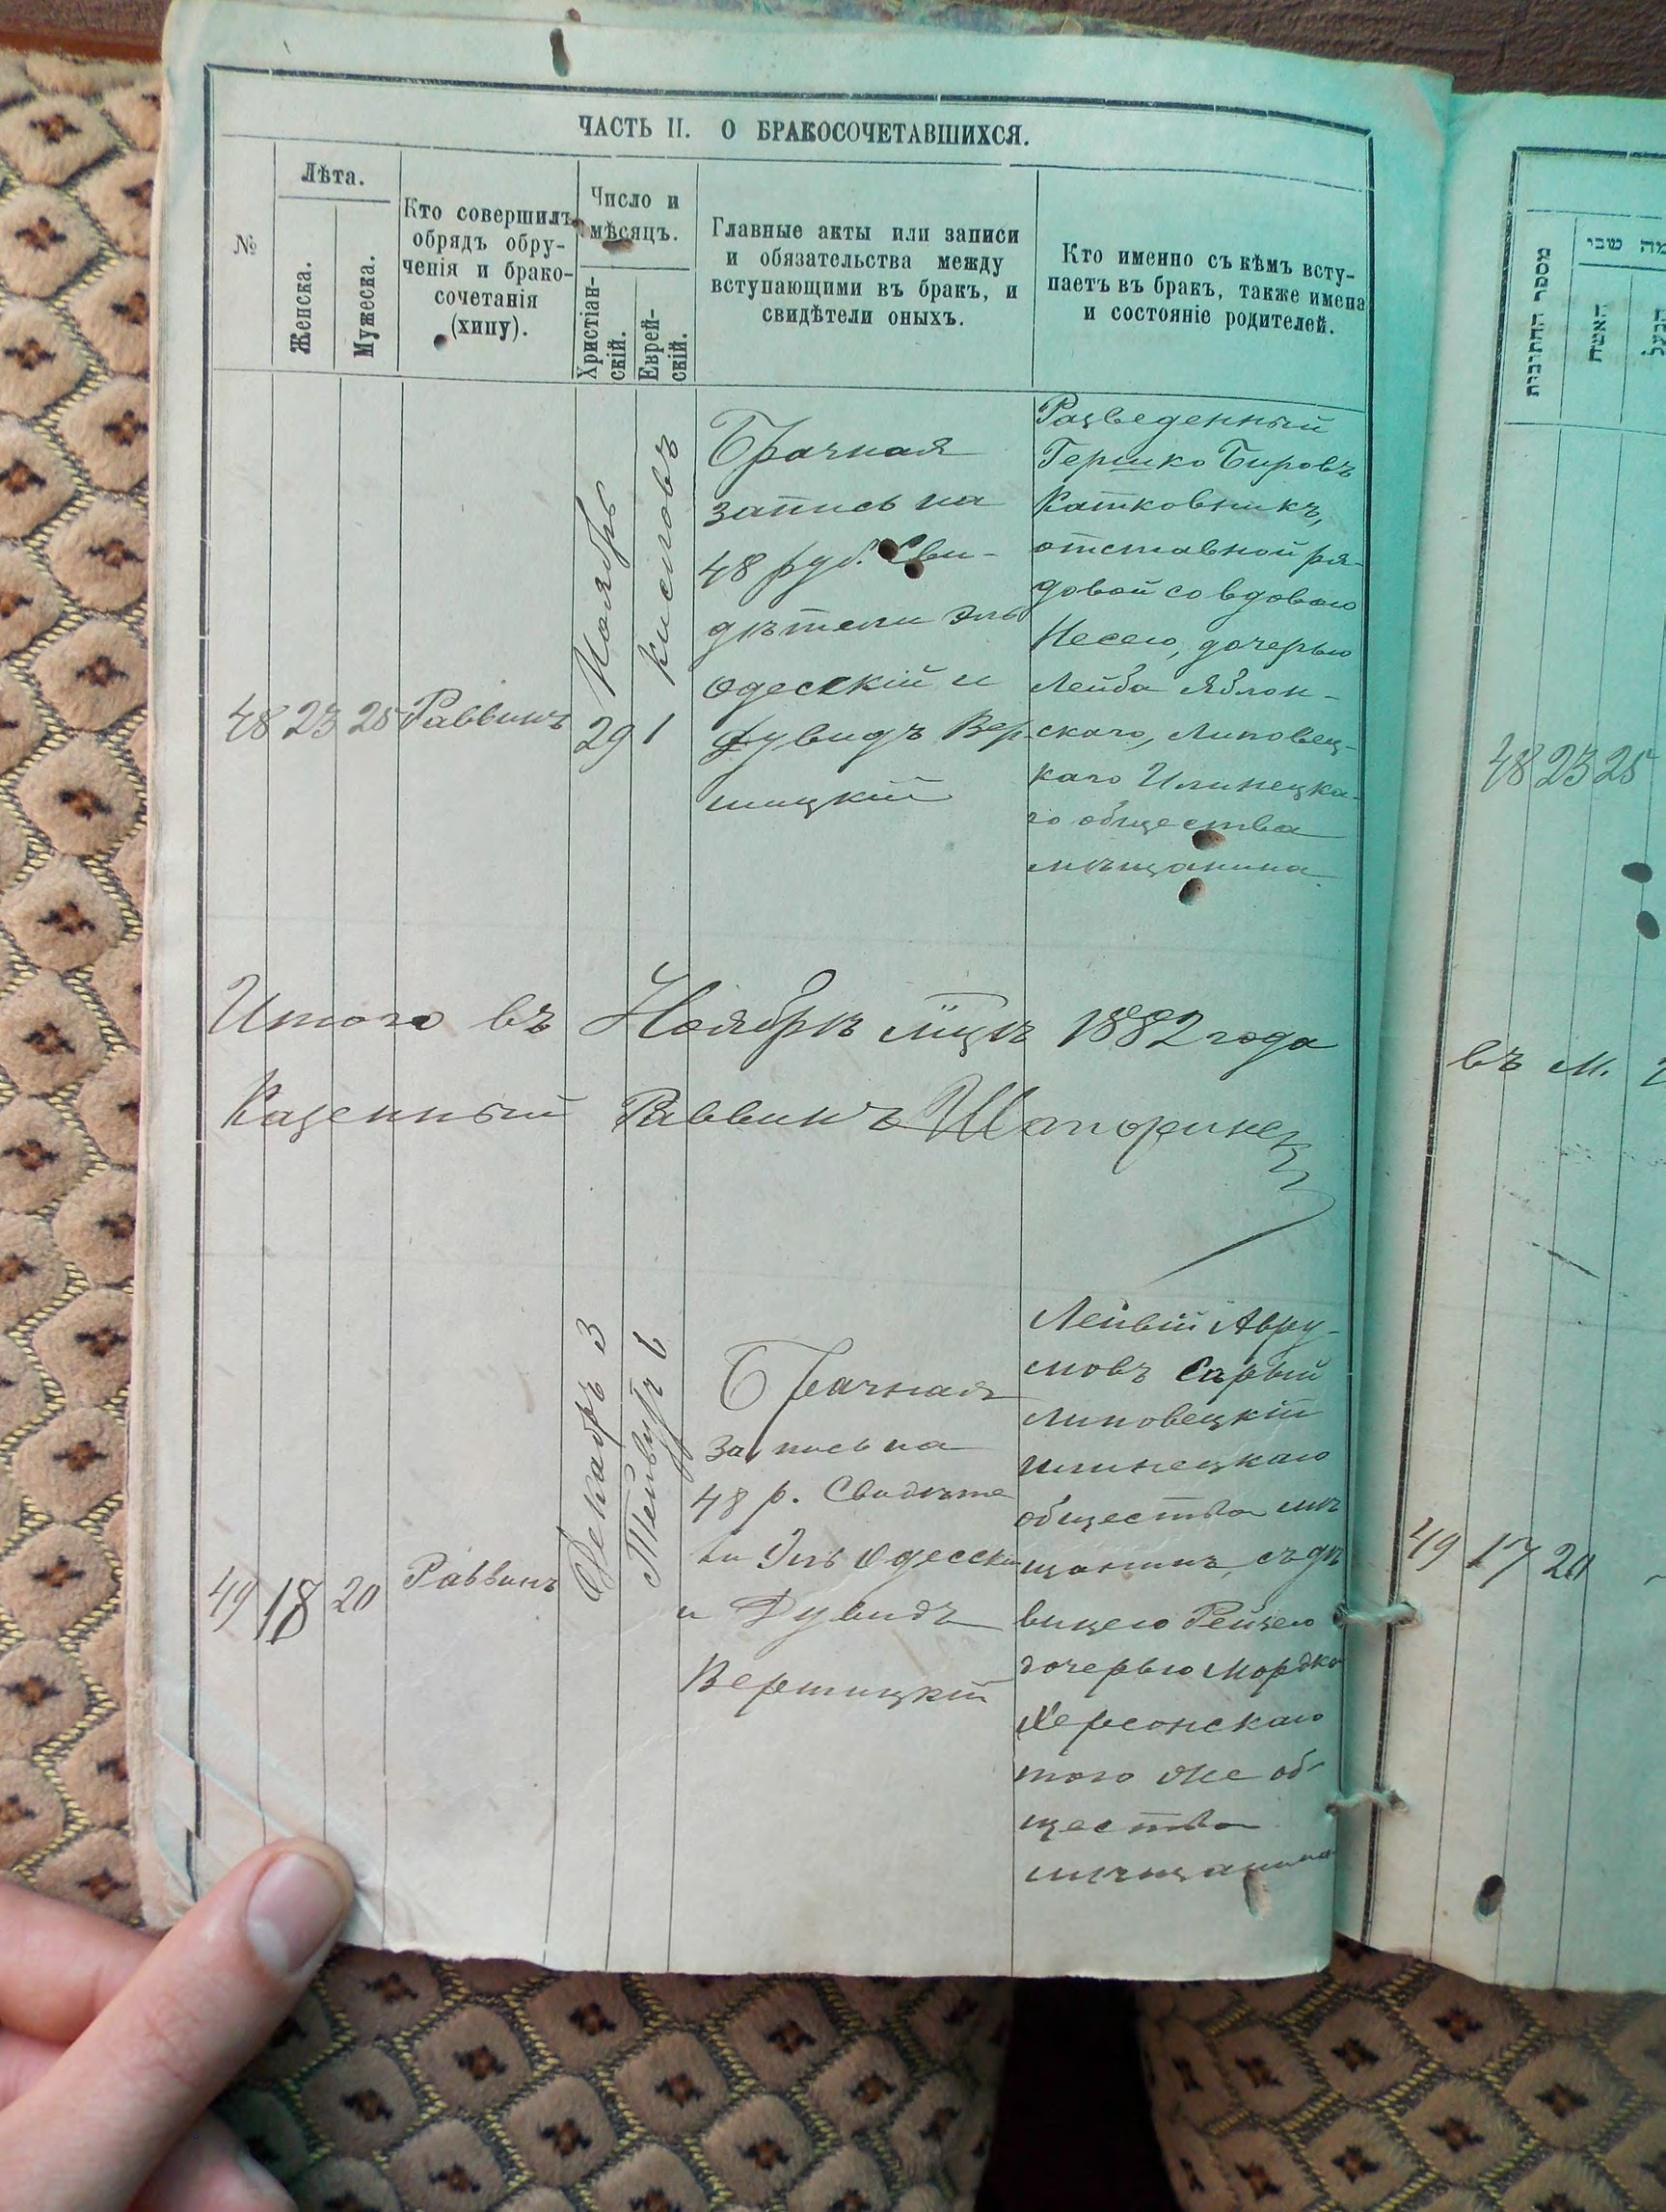 ЧАСТЬ II. О БРАКОСОЧЕТАВШИХСЯ.
№
Лѣта.
Женска.
Мужеска.
Кто совершилъ
обрядъ обру-
ченія и брако-
сочетанія
(хипу).
Число и
мѣсяцъ.
Христіан-
скій.
Еврей-
скій.
Главные акты или записи
и обязательства между
вступающими въ бракъ, и
свидѣтели оныхъ.
Кто именно съ кѣмъ всту-
паетъ въ бракъ, также имена
и состояніе родителей.
48 23 25 Раввинъ
Ноябрь
29
Кислевъ
1
Брачная
запись на
48 руб. Сви-
дѣтели Эль
Одесскій и
Дувидъ Вер-
шицкій
Разведенный
Гершко Бировъ
Катковникъ,
отставной ря-
довой со вдовою
Несею, дочерью
Лейба Яблон-
скаго, Липовец-
каго Илинецка-
го общества
мѣщанина
Итого въ Ноябрѣ мцѣ 1882 года
Казенный Раввинъ
49 18 20 Раввинъ
Декабрь 3
Тейвусъ 6
Брачная
запись на
48 р. Свидѣте
ли Эль Одесскій
и Дувидъ
Вершицкій
Лейвій Авру-
мовъ Сѣрый
Липовецкій
Илинецкаго
общества мѣ
щанинъ, съ дѣ
вицею Рейзею
дочерью Мордко
Херсонскаго
того же об-
щества
мѣщанина
מספר החתונות
שני
מה
האשה
הבעל
48 23 25
въ м.
49 17 20